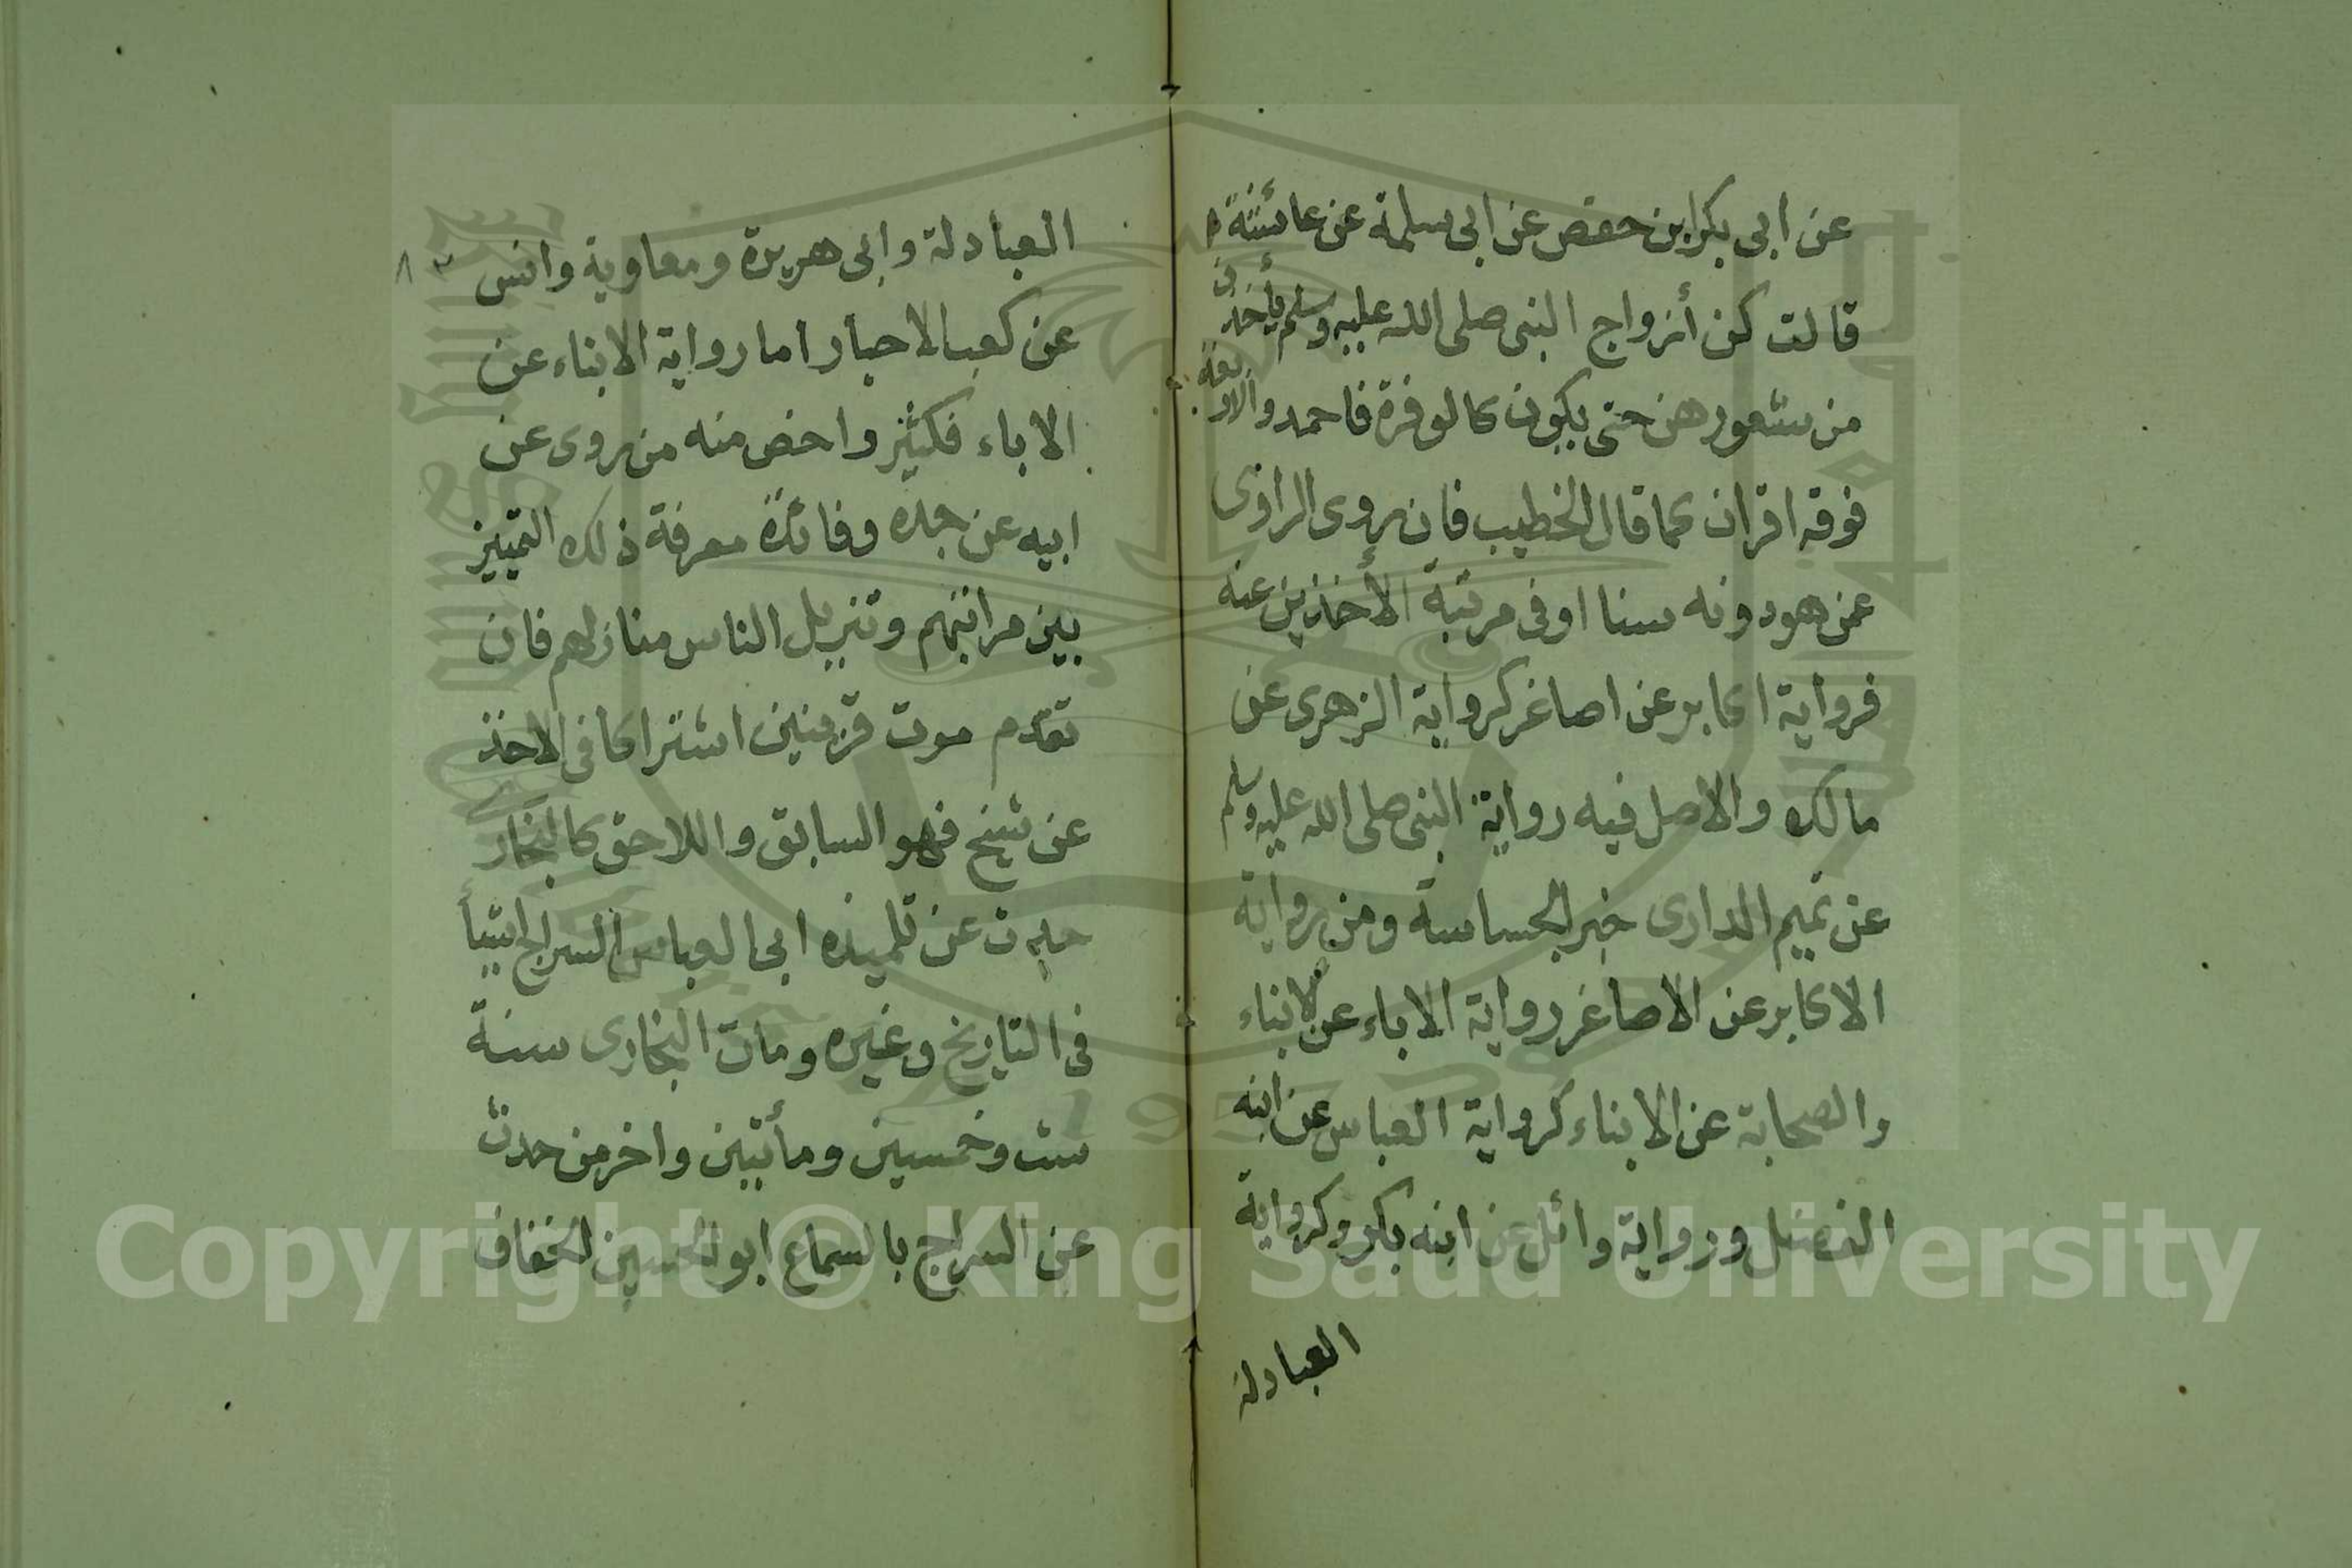 عن ابى بكر ابن حفص عن ابى سلمة عن عائشة
قالت كن أزواج النبى صلى الله عليه وسلم يأخذن
من شعورهن حتى يكون كالوفرة فاحمد والاربعة
فوقه اقران كما قال الخطيب فان روى الراوى
عمن هو دونه سنا او فى مرتبة الأخذين عنه
فرواية اكابر عن اصاغر كرواية الزهرى عن
مالك والاصل فيه رواية النبى صلى الله عليه وسلم
عن تميم الدارى خبر الجساسة ومن رواية
الاكابر عن الاصاغر رواية الاباء عن الابناء
والصحابة عن الابناء كرواية العباس عن ابنه
الفضل ورواية وائل عن ابنه بكر وكرواية
العبادلة
العبادلة وابى هريرة ومعاوية وانس
عن كعب الاحبار اما رواية الابناء عن
الاباء فكثير واخص منه من روى عن
ابيه عن جده وفائدة معرفة ذلك التمييز
بين مراتبهم وتنزيل الناس منازلهم فان
تقدم موت قرينين اشتراكا فى الاخذ
عن شيخ فهو السابق واللاحق كالبخارى
حدث عن تلميذه ابى العباس السراج اشيأ
فى التاريخ وغيره ومات البخارى سنة
ست وخمسين ومأتين واخر من حدث
عن السراج بالسماع ابو الحسين الخفاف
Copyright © King Saud University